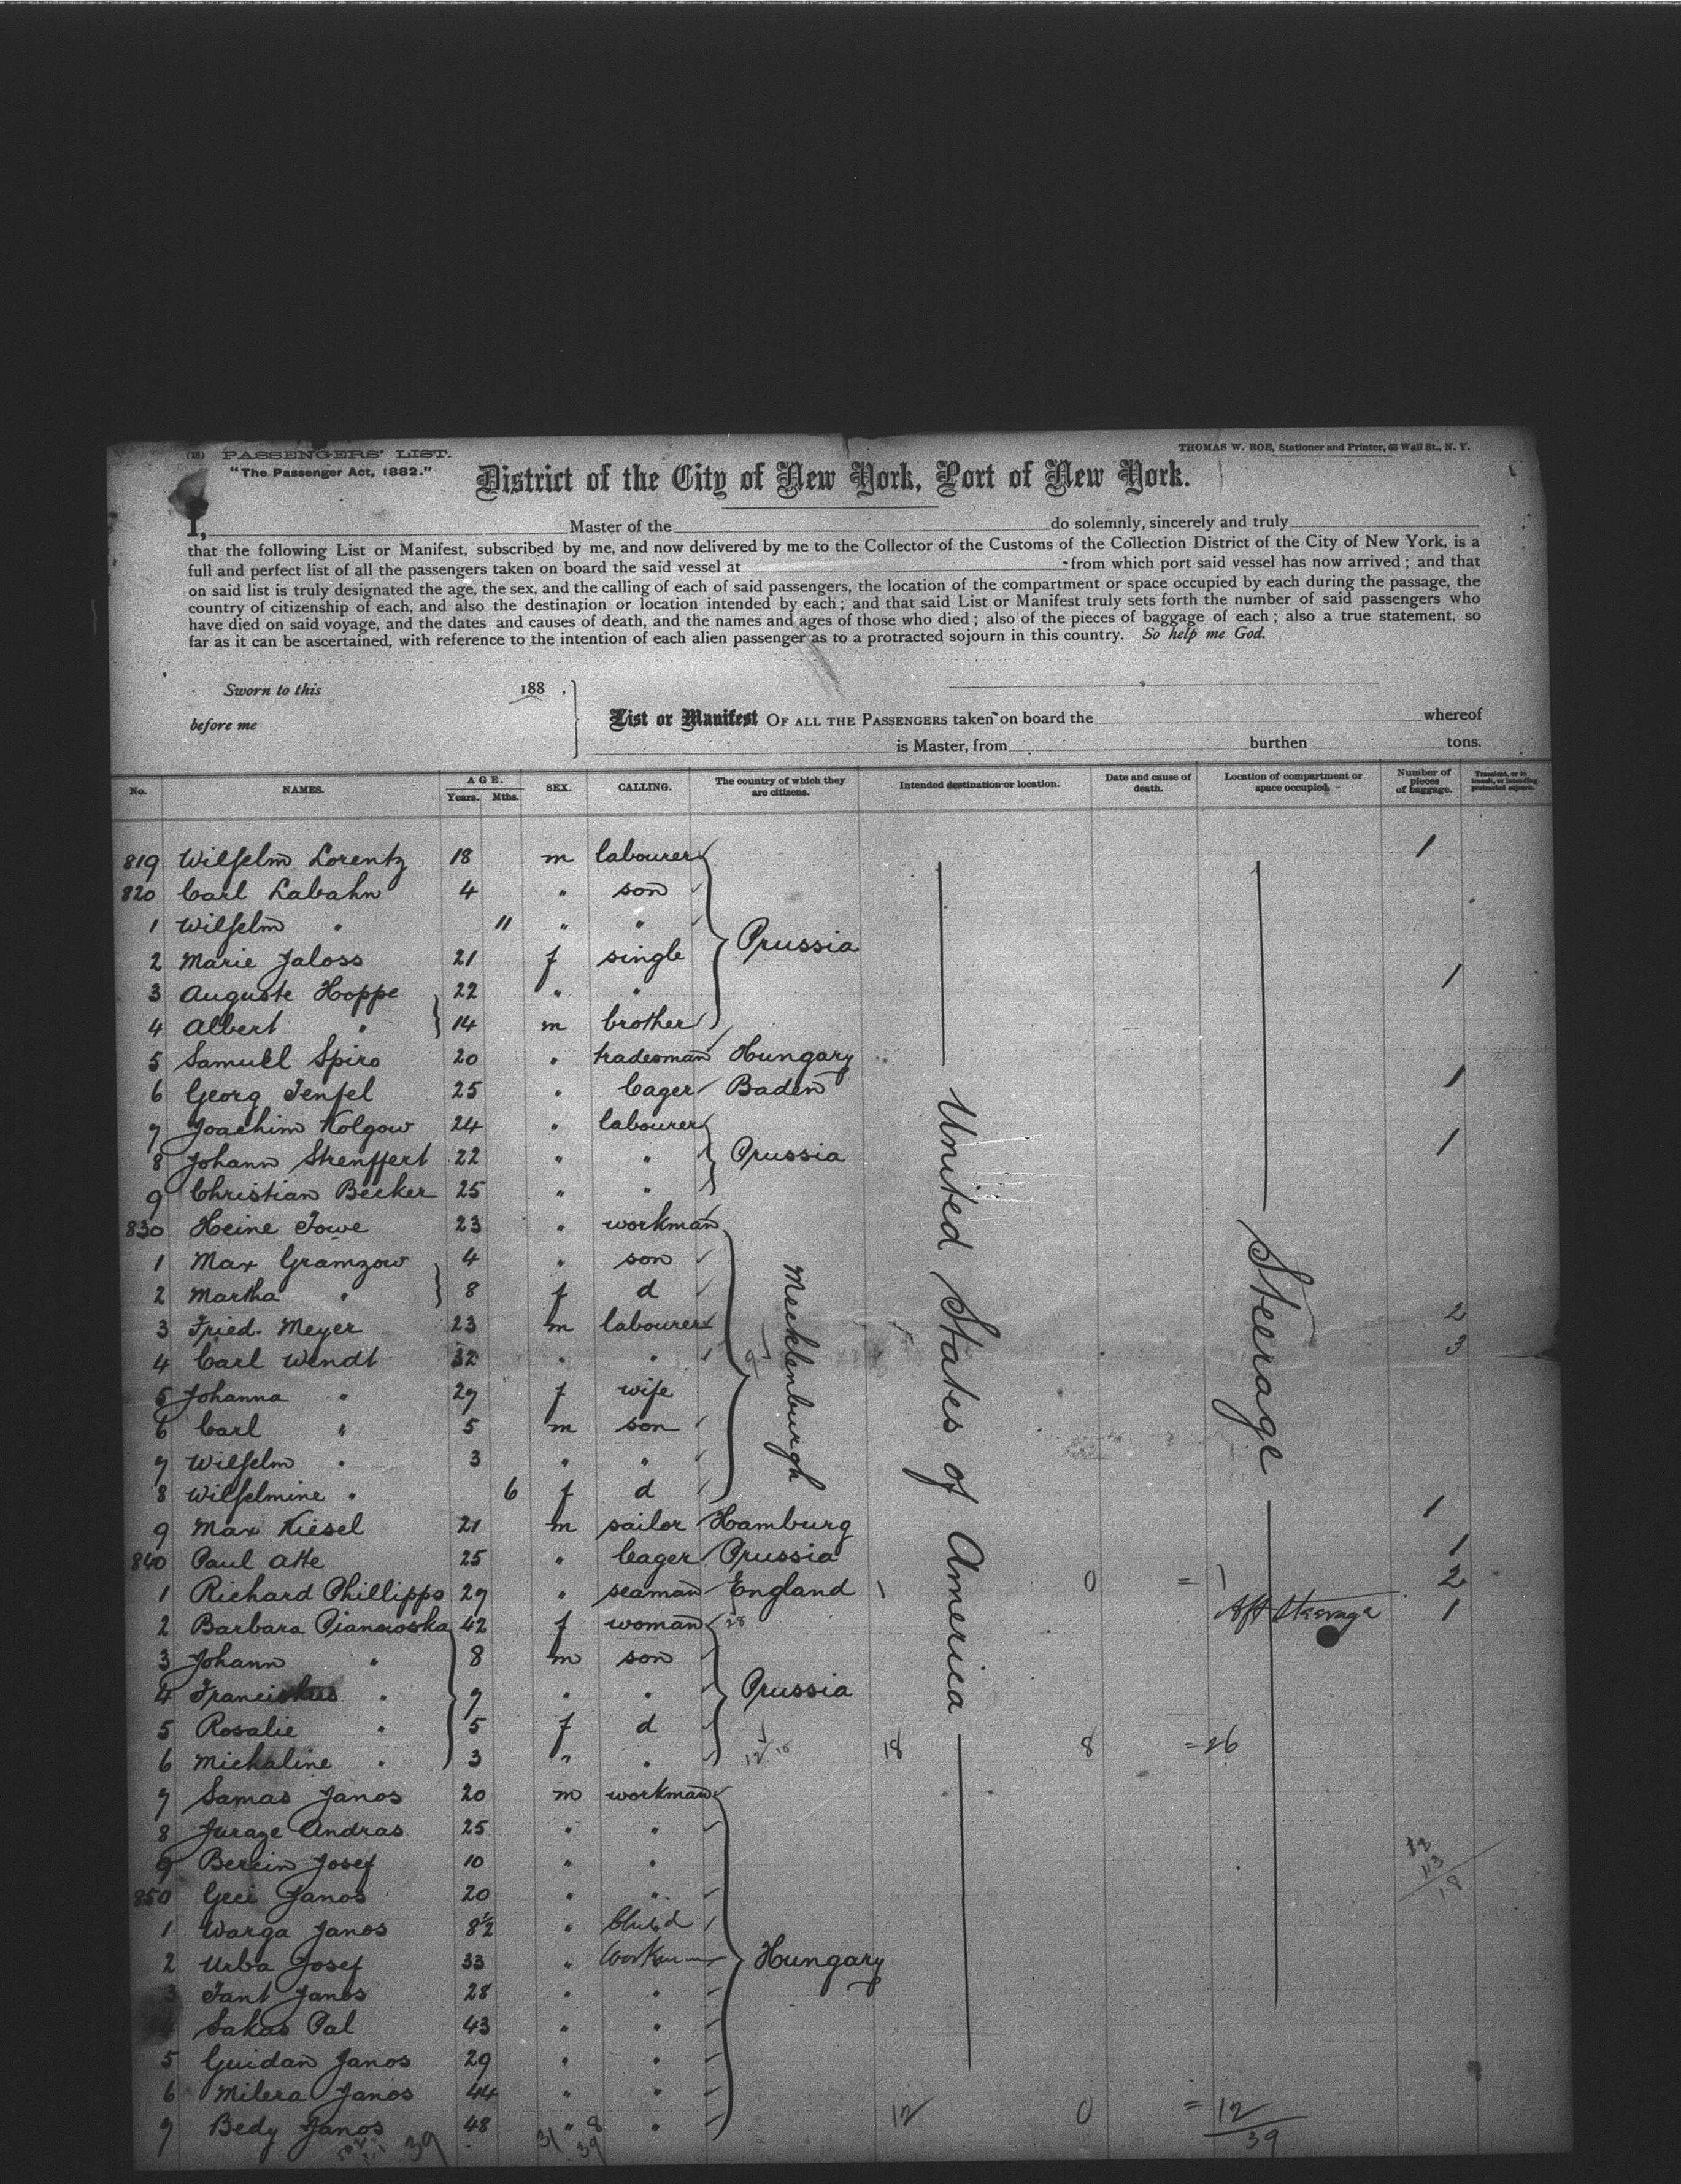 (18) PASSENGERS' LIST.
THOMAS W. ROE, Stationer and Printer, 63 Wall St., N. Y.
"The Passenger Act, 1882."
District of the City of New York, Port of New York.
I, Master of the do solemnly, sincerely and truly
that the following List or Manifest, subscribed by me, and now delivered by me to the Collector of the Customs of the Collection District of the City of New York, is a
full and perfect list of all the passengers taken on board the said vessel at from which port said vessel has now arrived; and that
on said list is truly designated the age, the sex, and the calling of each of said passengers, the location of the compartment or space occupied by each during the passage, the
country of citizenship of each, and also the destination or location intended by each; and that said List or Manifest truly sets forth the number of said passengers who
have died on said voyage, and the dates and causes of death, and the names and ages of those who died; also of the pieces of baggage of each; also a true statement, so
far as it can be ascertained, with reference to the intention of each alien passenger as to a protracted sojourn in this country. So help me God.
Sworn to this 188 .
before me
List or Manifest OF ALL THE PASSENGERS taken on board the whereof
is Master, from burthen tons.
No. NAMES. AGE. Years. Mths. SEX. CALLING. The country of which they are citizens. Intended destination or location. Date and cause of death. Location of compartment or space occupied. Number of pieces of baggage. Transient, or in transit, or intending protracted sojourn.
819 Wilhelm Lorentz 18 m labourer 1
820 Carl Labahn 4 " son
1 Wilhelm " 11 " "
Prussia
2 Marie Jaloss 21 f single 1
3 Auguste Hoppe 22 " "
4 Albert " 14 m brother
5 Samuel Spiro 20 " tradesman Hungary
6 Georg Tenfel 25 " Cager Baden 1
7 Joachim Kolgow 24 " labourer
8 Johann Strenffert 22 " " Prussia 1
9 Christian Becker 25 " "
830 Heine Towe 23 " workman
1 Max Gramzow 4 " son
2 Martha " 8 f d
3 Fried. Meyer 23 m labourer 2
4 Carl Wendt 32 " " 3
Mecklenburgh
United States of America
Steerage
5 Johanna " 27 f wife
6 Carl " 5 m son
7 Wilhelm " 3 " "
8 Wilhelmine " 6 f d
9 Max Kiesel 21 m sailor Hamburg 1
840 Paul Atte 25 " Cager Prussia 1
1 Richard Phillipps 27 " seaman England 1 0 = 1 2
2 Barbara Pianowoska 42 f woman 28 Aft Steerage 1
3 Johann " 8 m son
4 " 7 " " Prussia
5 Rosalie " 5 f d
6 Michaline " 3 " " 18 8 =26
7 Samas Janos 20 m workman
8 Juraze Andras 25 " "
9 Berein Josef 10 " "
850 Geci Janos 20 " "
1 Warga Janos 8½ " Child
2 Urba Josef 33 " Workman Hungary
3 Tant Janos 28 " "
4 Sakas Pal 43 " "
5 Guidan Janos 29 " "
6 Milera Janos 44 " "
7 Bedy Janos 48 " " 12 0 = 12
39 31 8 39 39